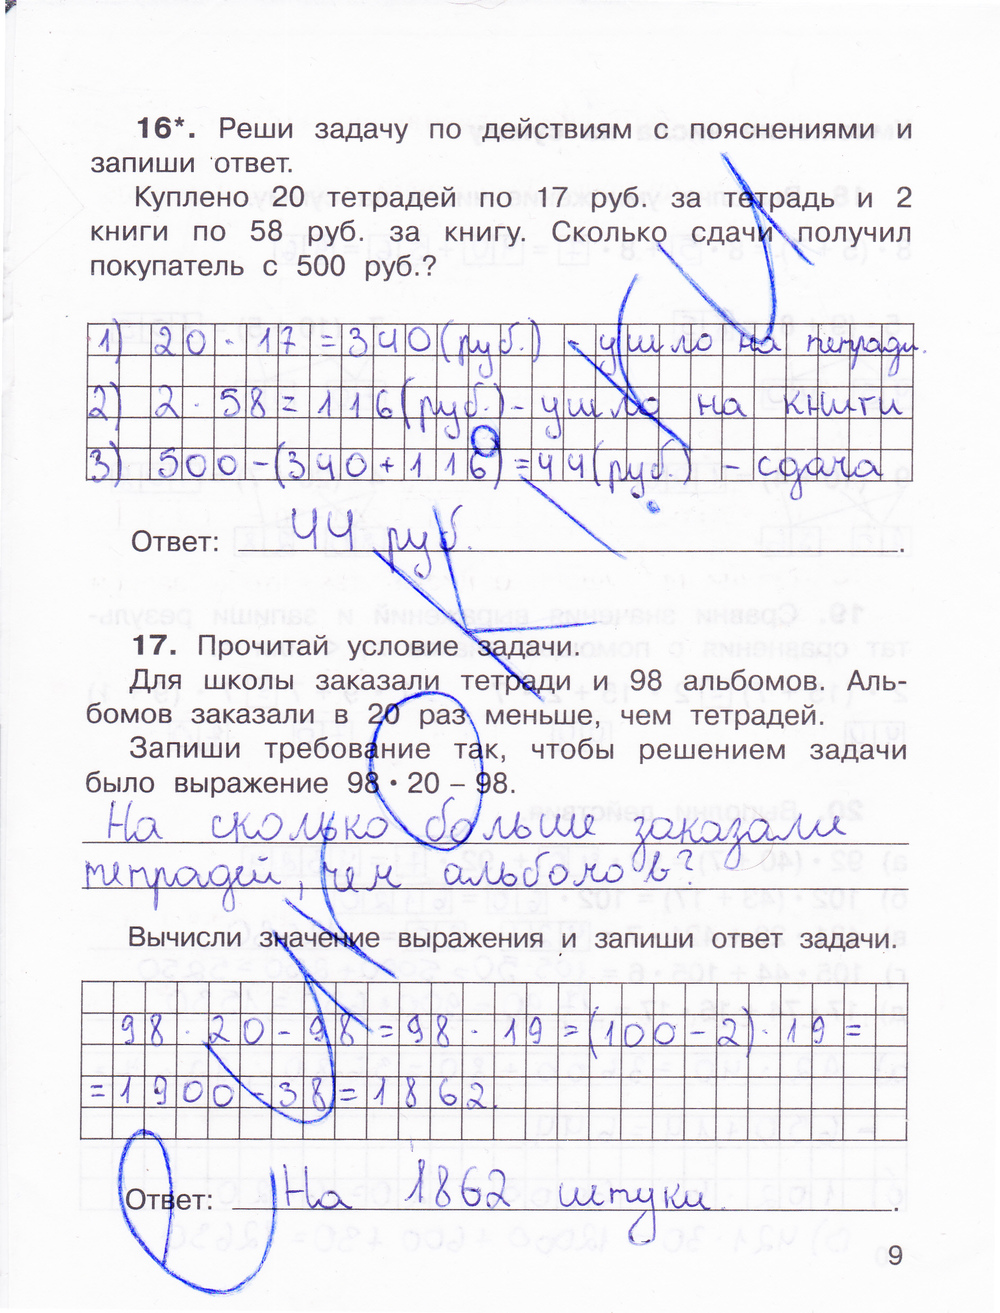 16*. Реши задачу по действиям с пояснениями и
запиши ответ.
Куплено 20 тетрадей по 17 руб. за тетрадь и 2
книги по 58 руб. за книгу. Сколько сдачи получил
покупатель с 500 руб.?
1) 20 · 17 = 340 (руб.) - ушло на тетради.
2) 2 · 58 = 116 (руб.) - ушло на книги
3) 500 - (340 + 116) = 44 (руб.) - сдача
Ответ: 44 руб.
17. Прочитай условие задачи.
Для школы заказали тетради и 98 альбомов. Аль-
бомов заказали в 20 раз меньше, чем тетрадей.
Запиши требование так, чтобы решением задачи
было выражение 98 · 20 – 98.
На сколько больше заказали
тетрадей, чем альбомов?
Вычисли значение выражения и запиши ответ задачи.
98 · 20 - 98 = 98 · 19 = (100 - 2) · 19 =
= 1900 - 38 = 1862.
Ответ: На 1862 штуки.
9